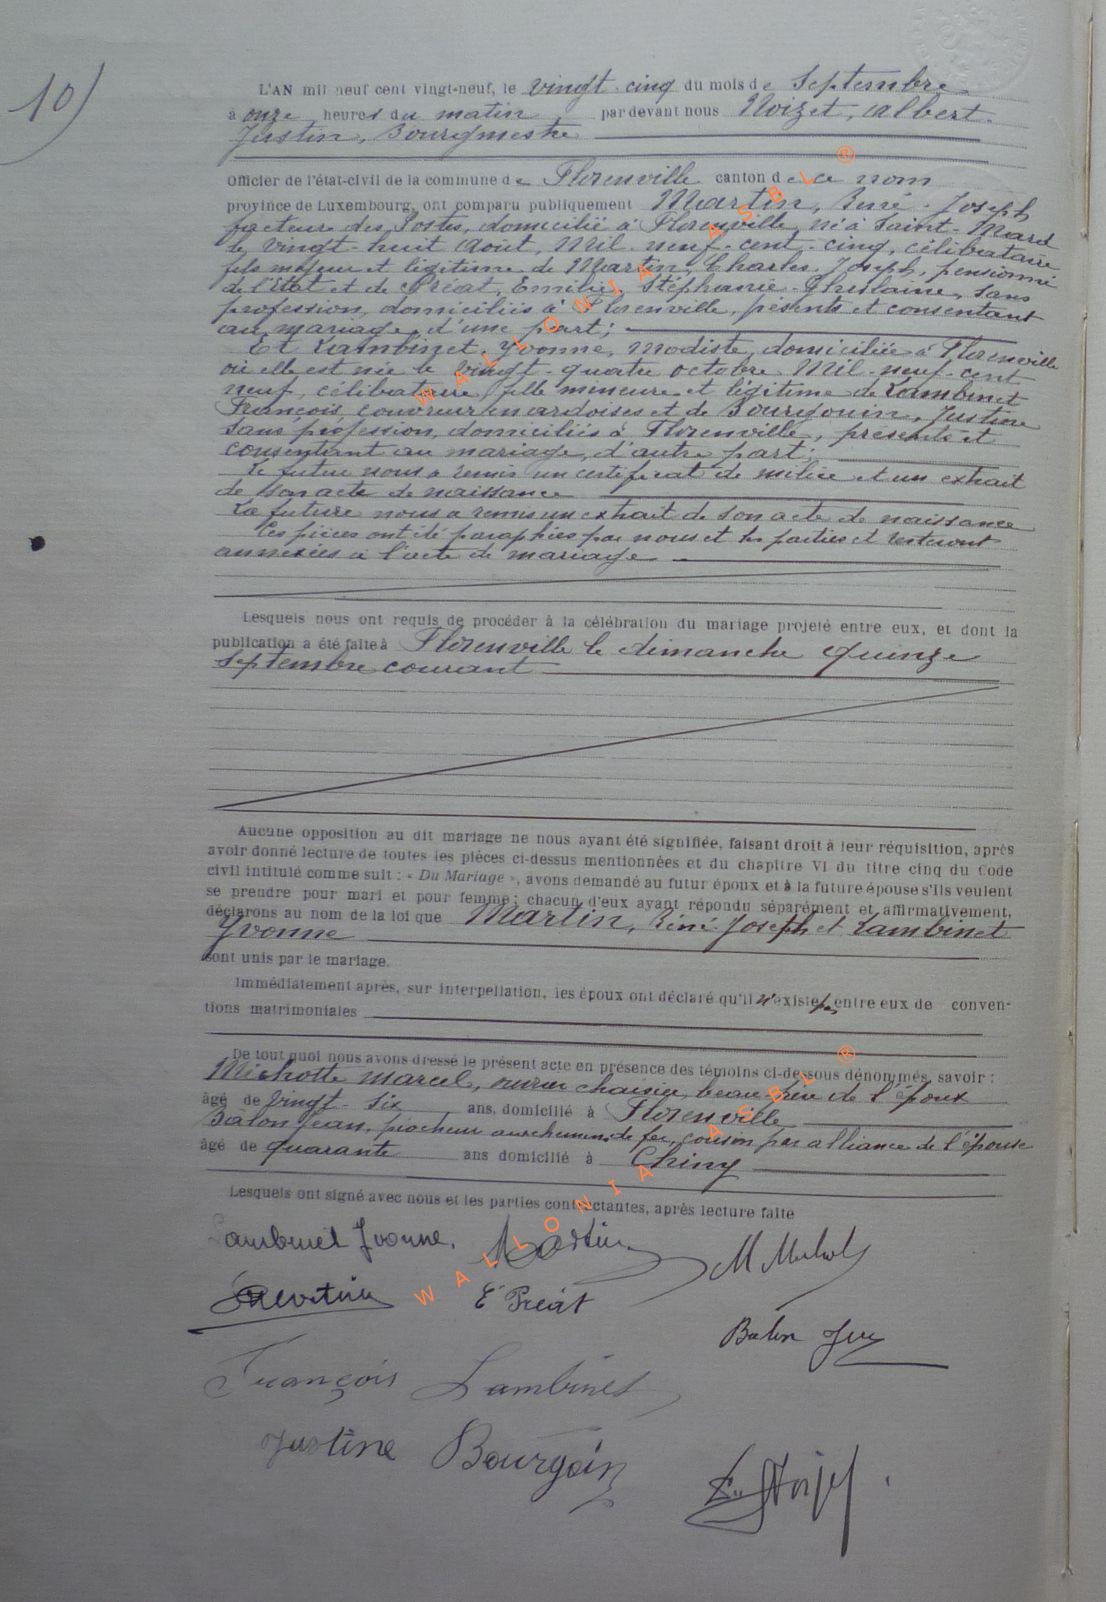 10)
L'AN mil neuf cent vingt-neuf, le vingt-cinq du mois de Septembre
à onze heures du matin par devant nous Noizet, Albert
Justin, Bourgmestre
Officier de l'état-civil de la commune de Florenville canton de ce nom
province de Luxembourg, ont comparu publiquement Martin, René-Joseph
facteur des Postes, domicilié à Florenville, né à Saint-Mard
le vingt-huit Août, Mil-neuf-cent-cinq, célibataire
fils majeur et légitime de Martin, Charles Joseph, pensionné
de l'Etat et de Préat, Emilie, Stéphanie-Ghislaine, sans
profession, domiciliés à Florenville, présents et consentant
au mariage, d'une part;
Et Lambinet, Yvonne, modiste, domiciliée à Florenville
où elle est née le vingt-quatre octobre Mil-neuf-cent
neuf, célibataire, fille mineure et légitime de Lambinet
François, couvreur en ardoises et de Bourgouin, Justine
sans profession, domiciliés à Florenville, présents et
consentant au mariage, d'autre part;
Le futur nous a remis un certificat de milice et un extrait
de son acte de naissance
La future nous a remis un extrait de son acte de naissance
Ces pièces ont été paraphées par nous et les parties et resteront
annexées à l'acte de mariage
Lesquels nous ont requis de procéder à la célébration du mariage projeté entre eux, et dont la
publication a été faite à Florenville le dimanche quinze
Septembre courant
Aucune opposition au dit mariage ne nous ayant été signifiée, faisant droit à leur réquisition, après
avoir donné lecture de toutes les pièces ci-dessus mentionnées et du chapitre VI du titre cinq du Code
civil intitulé comme suit : « Du Mariage », avons demandé au futur époux et à la future épouse s'ils veulent
se prendre pour mari et pour femme ; chacun d'eux ayant répondu séparément et affirmativement,
déclarons au nom de la loi que Martin, Réné-Joseph et Lambinet
Yvonne
sont unis par le mariage.
Immédiatement après, sur interpellation, les époux ont déclaré qu'il n'existe pas entre eux de conven-
tions matrimoniales
De tout quoi nous avons dressé le présent acte en présence des témoins ci-dessous dénommés, savoir :
Michotte Marcel, ouvrier chaisier, beau-frère de l'époux
âgé de vingt-six ans, domicilié à Florenville
Balon Jean, piocheur au chemin de fer, cousin par alliance de l'épouse
âgé de quarante ans domicilié à Chiny
Lesquels ont signé avec nous et les parties contractantes, après lecture faite
Lambinet Yvonne. Martin M Michot
E Préat
Balon Jean
François Lambinet
Justine Bourgoin
WALLONIA ASBL ®
WALLONIA ASBL ®